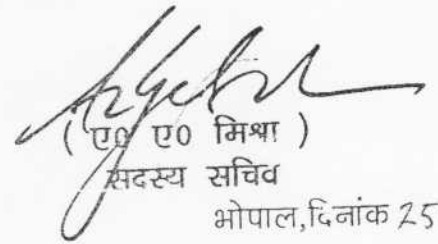 ( ए0 ए0 मिश्रा )
सदस्य सचिव
भोपाल,दिनांक 25